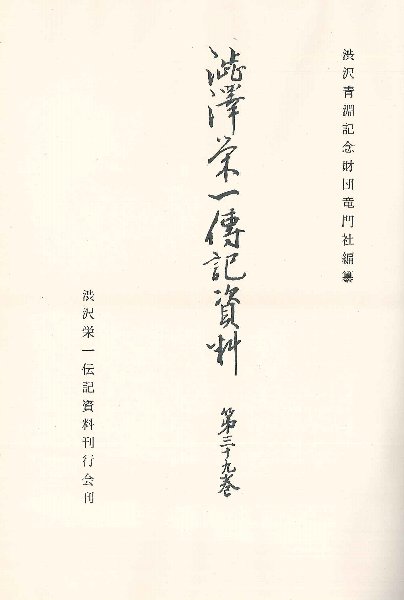 渋沢青淵記念財団竜門社編纂
澁澤栄一傳記資料
第三十九巻
渋沢栄一伝記資料刊行会刊